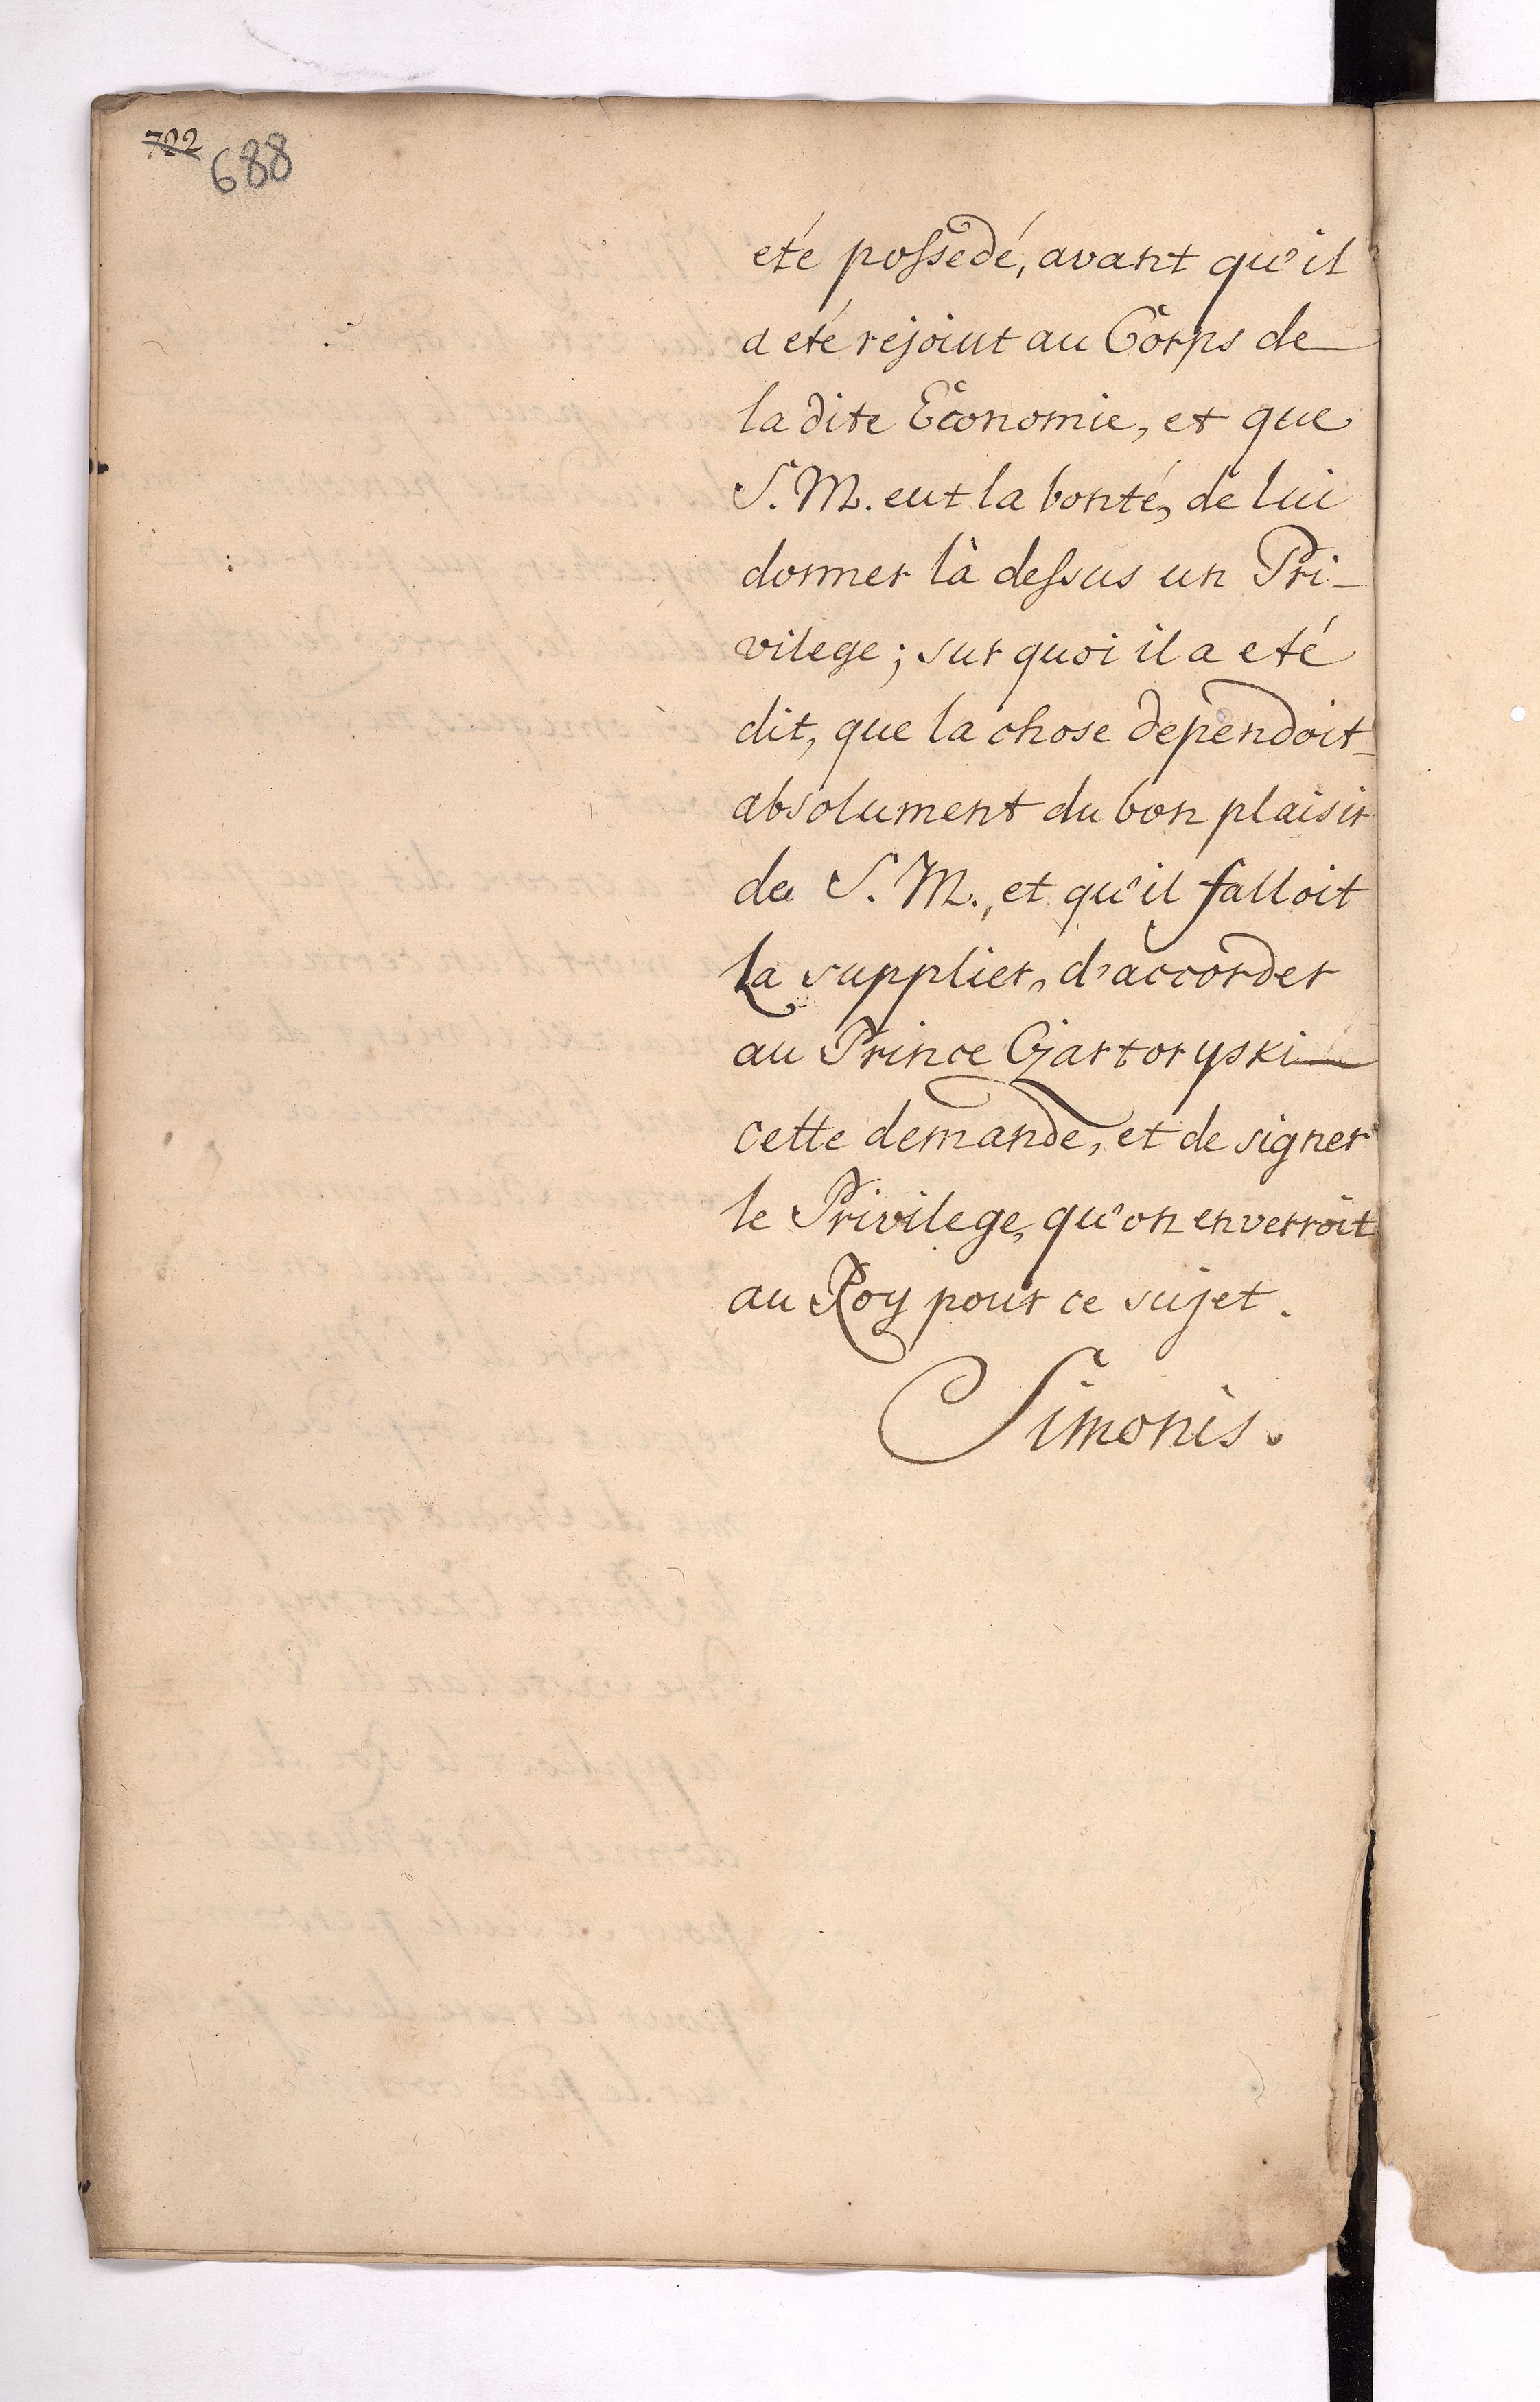 722 688
eté possedé, avant qu'il
a eté rejoint au Corps de
la dite Economie, et que
S. M. eut la bonté, de lui
donner là dessus un Pri-
vilege; sur quoi il a eté
dit, que la chose dependoit
absolument du bon plaisir
de S. M., et qu'il falloit
La supplier, d'accorder
au Prince Czartoryski
cette demande, et de signer
le Privilege, qu'on enverroit
au Roy pour ce sujet.
Simonis.